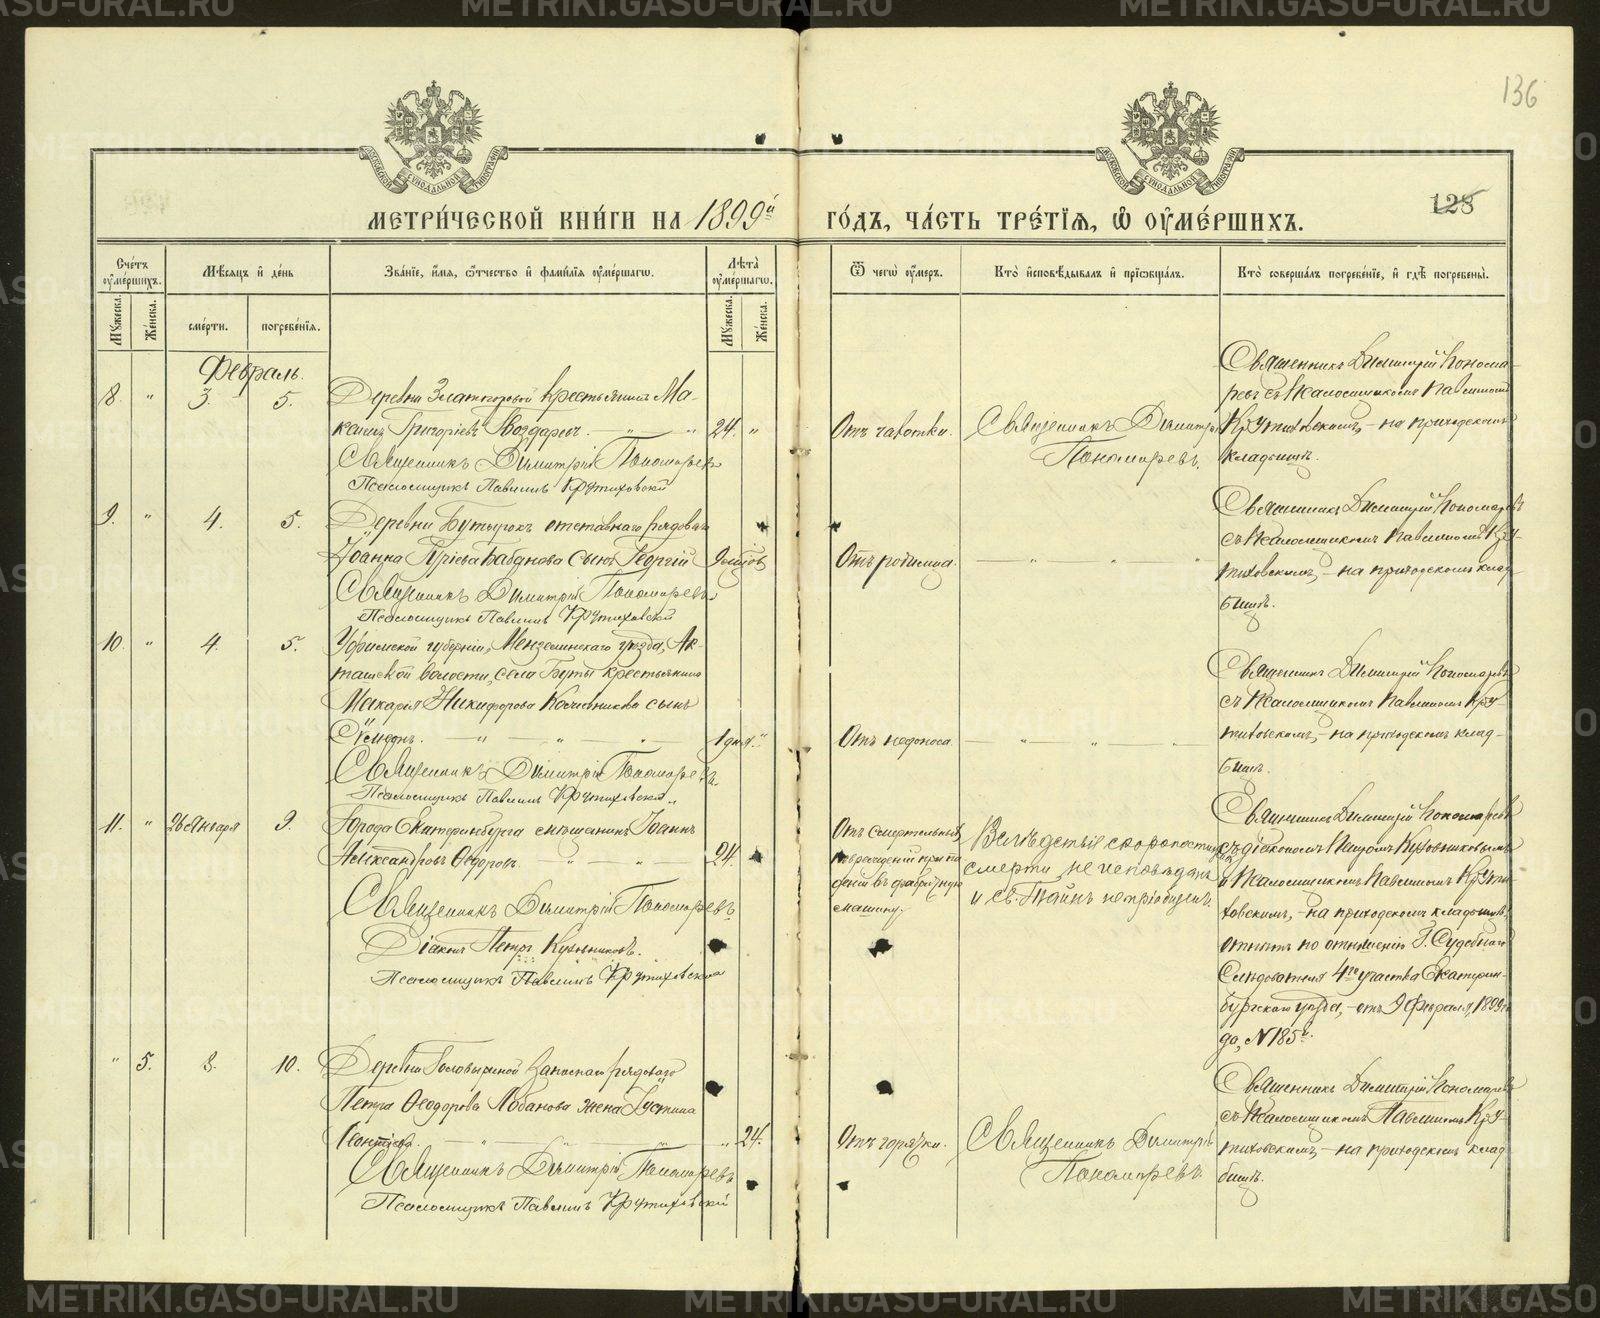 136
128
МЕТРИ́ЧЕСКОЙ КНИ́ГИ НА 1899й
ГО́ДЪ, ЧА́СТЬ ТРЕ́ТІѦ, Ѡ҆ ОУ҆МЕ́РШИХЪ.
Сче́тъ оу҆ме́ршихъ.
Мужеска.
Женска.
Мѣсяцъ и҆ де́нь
сме́рти.
погребе́нїя.
Зва́нїе, и҆́мя, ѻ҆́тчество и҆ фами́лїя оу҆ме́ршагѡ.
Лѣта̀ оу҆ме́ршагѡ.
Мужеска.
Женска.
Ѿ чегѡ̀ оу҆́меръ.
Кто̀ и҆сповѣ́дывалъ и҆ прїѡбща́лъ.
Кто̀ соверша́лъ погребе́нїе, и҆ гдѣ̀ погребены̀.
Февраль.
8. " 3. 5.
Деревни Златогоровой крестьянинъ Ма-
ксимъ Григоріевъ Гвоздаревъ. " " 24. "
Священникъ Димитрій Пономаревъ
Псаломщикъ Павлинъ Крутиховскій
Отъ чахотки.
Священникъ Димитрій
Пономаревъ.
Священникъ Димитрій Понома-
ревъ съ Псаломщикомъ Павлиномъ
Крутиховскимъ, – на приходскомъ
кладбищѣ.
9. " 4. 5.
Деревни Бутырокъ отставнаго рядоваго
Іоанна Гурьева Бабанова сынъ Георгій 9 мѣсяцовъ
Священникъ Димитрій Пономаревъ
Псаломщикъ Павлинъ Крутиховскій
Отъ родимца.
Священникъ Димитрій Пономаревъ
съ Псаломщикомъ Павлиномъ Кру-
тиховскимъ, – на приходскомъ клад-
бищѣ.
10. " 4. 5.
Уфимской губерніи, Мензелинскаго уѣзда, Ак-
ташской волости, села Буты крестьянина
Макарія Никифорова Кочевникова сынъ
Сѷмеонъ. 1 дня. "
Священникъ Димитрій Пономаревъ
Псаломщикъ Павлинъ Крутиховскій
Отъ недоноса.
Священникъ Димитрій Пономаревъ
съ Псаломщикомъ Павлиномъ Кру-
тиховскимъ, – на приходскомъ клад-
бищѣ.
11. " 26 Января 9.
Города Екатеринбурга мѣщанинъ Іоаннъ
Александровъ Ѳедоровъ. 24.
Священникъ Димитрій Пономаревъ.
Діаконъ Петръ Кузовниковъ.
Псаломщикъ Павлинъ Крутиховскій
Отъ смертельныхъ
поврежденій при па-
деніи въ фабричную
машину.
Вслѣдствіе скоропостижной
смерти не исповѣданъ
и Св. Тайнъ не пріобщенъ.
Священникъ Димитрій Пономаревъ
съ діакономъ Петромъ Кузовниковымъ
и Псаломщикомъ Павлиномъ Крути-
ховскимъ, – на приходскомъ кладбищѣ,
отпѣтъ по отношенію Г. Судебнаго
Слѣдователя 4го участка Екатерин-
бургскаго уѣзда, – отъ 9 Февраля, 1899 го-
да, № 185.
" 5. 8. 10.
Деревни Головыриной запаснаго рядоваго
Петра Ѳеодорова Лобанова жена Іустина
Леонтіева. 24.
Священникъ Димитрій Пономаревъ
Псаломщикъ Павлинъ Крутиховскій
Отъ горячки.
Священникъ Димитрій
Пономаревъ.
Священникъ Димитрій Пономаревъ
съ Псаломщикомъ Павлиномъ Кру-
тиховскимъ, – на приходскомъ клад-
бищѣ.
METRIKI.GASO-URAL.RU